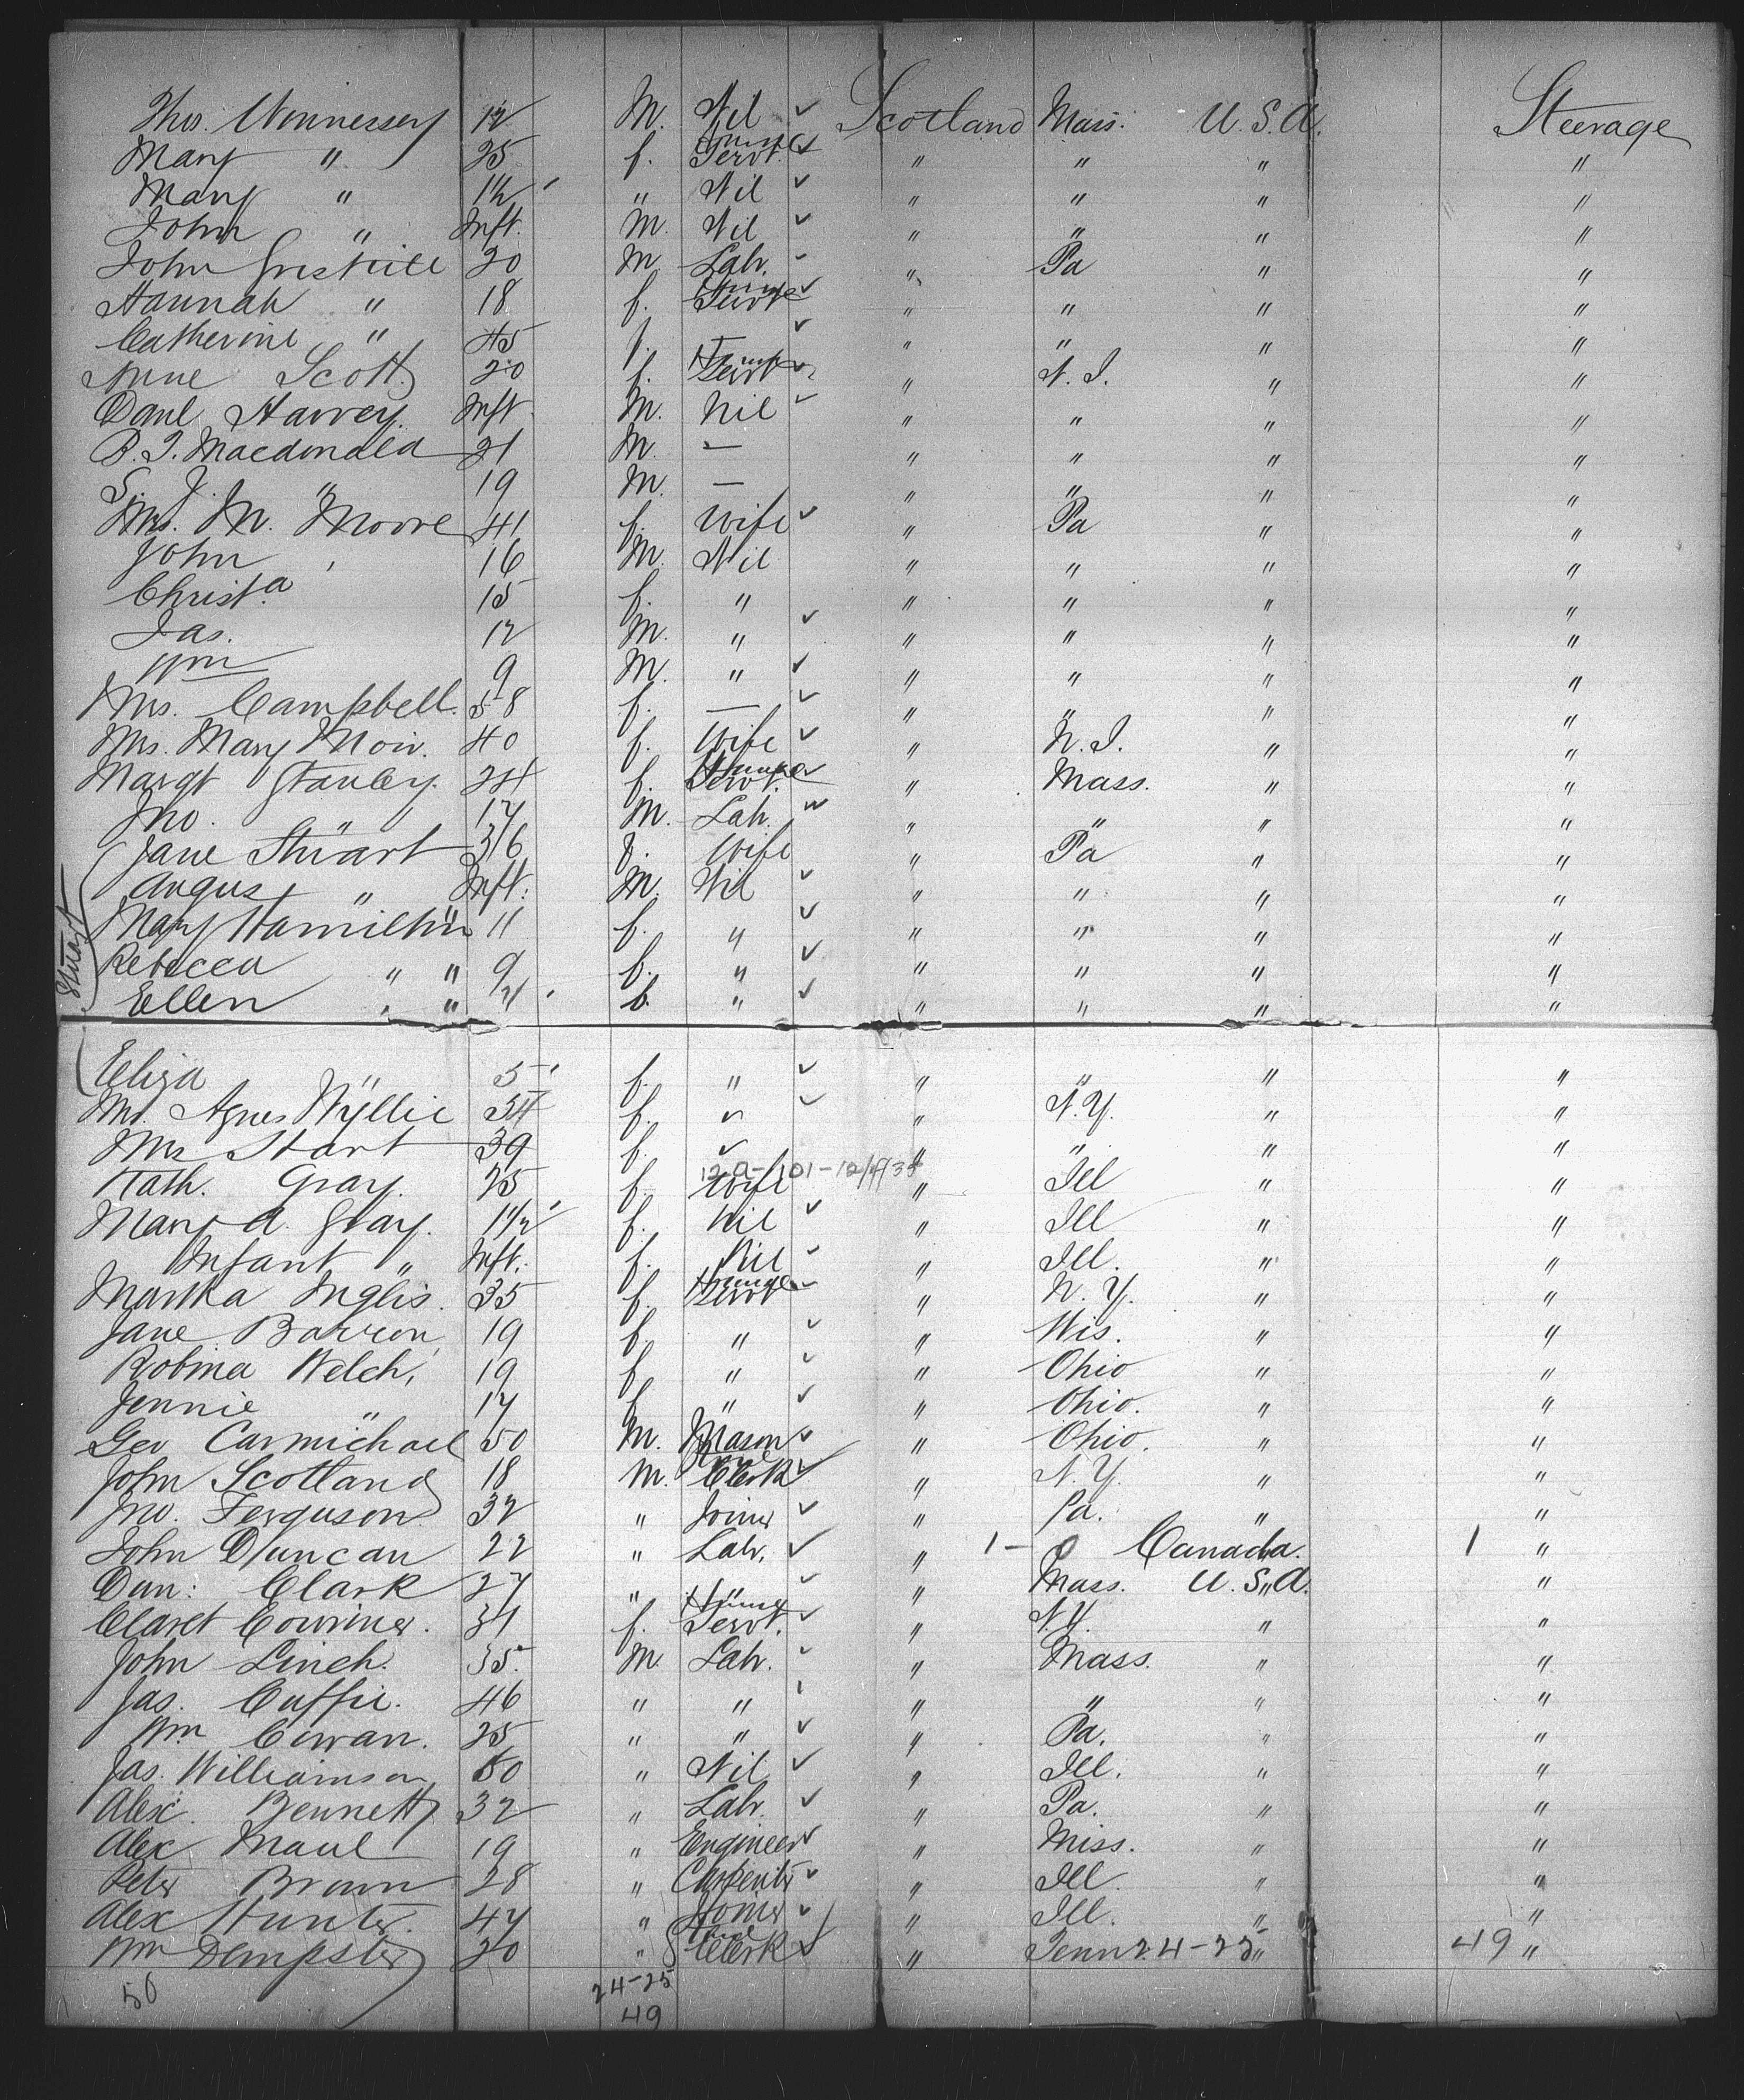 Thos. Wennessey 12 M. Nil ✓ Scotland Mass. U.S.A. Steerage
Mary " 25 f. Servt. ✓ " " " "
Mary " 1½ " Nil ✓ " " " "
John " Inft. M. Nil ✓ " " " "
John 20 M Labr. " Pa " "
Hannah " 18 f. Servt ✓ " " " "
Catherine " 45 f. — ✓ " " " "
Anne Scott 20 f. Servt ✓ " N.J. " "
Danl Harvey. Inft. M. Nil ✓ " " " "
Macdonald 21 M. — " " " "
S. J. " 19 M. — " " " "
Mrs. M. Moore 41 f. Wife ✓ " Pa " "
John 16 M. Nil " " " "
Christa 15 f. " " " " "
Jas. 12 M. " ✓ " " " "
Wm 9 M. " ✓ " " " "
Mrs. Campbell. 58 f. — ✓ " " " "
Mrs. Mary Moir. 40 f. Wife ✓ " N.J. " "
Margt Stanley. 24 f. Servt. ✓ " Mass. " "
Jno. " 17 M. Lab. " " " "
Jane Stuart 36 f. Wife " Pa " "
Angus " Inft. M. Nil ✓ " " " "
Stuart
Mary Hamilton " 11 f. " ✓ " " " "
Rebecca " " 9 f. " ✓ " " " "
Ellen " " f. " ✓ " " " "
Eliza " 5 f. " ✓ " " " "
Agnes Wyllie 34 f. ✓ " N.Y. " "
Mrs Hart 39 f. ✓ " " " "
Kath. Gray. 25 f. Wife " Ill " "
Mary A. Gray. 1½ f. Nil ✓ " Ill " "
Infant " Inft. f. Nil ✓ " Ill. " "
Martha Inglis. 35 f. Servt " N.Y. " "
Jane Barron 19 f. " ✓ " Wis. " "
Robina Welch, 19 f. " ✓ " Ohio " "
Jennie " 17 f " ✓ " Ohio. " "
Geo Carmichael 50 M. Mason ✓ " Ohio. " "
John Scotland 18 M. Clerk ✓ " N.Y. " "
Jno. Ferguson 32 " Joiner ✓ " Pa. " "
John Duncan 22 " Labr. ✓ " 1 - 0 Canada. 1 "
Dun: Clark 27 " " ✓ " Mass. U.S.A. "
Claret 31 f. Servt. ✓ " N.Y. " "
John Linch. 35. M. Labr. ✓ " Mass. " "
Jas. Cuffie. 46 " " " " " "
Wm Cowan. 25 " " ✓ " Pa. " "
Jas. Williamson 50 " Nil ✓ " Ill. " "
Alex. Bennett 32 " Labr. ✓ " Pa. " "
Alex Maul 19 " Engineer ✓ " Miss. " "
Peter Brown 28 " Carpenter ✓ " Ill. " "
Alex Hunter. 47 " Joiner ✓ " Ill. " "
Wm Dempster 20 " Clerk ✓ " Tenn 24-25 " 49 "
50 24-25
49